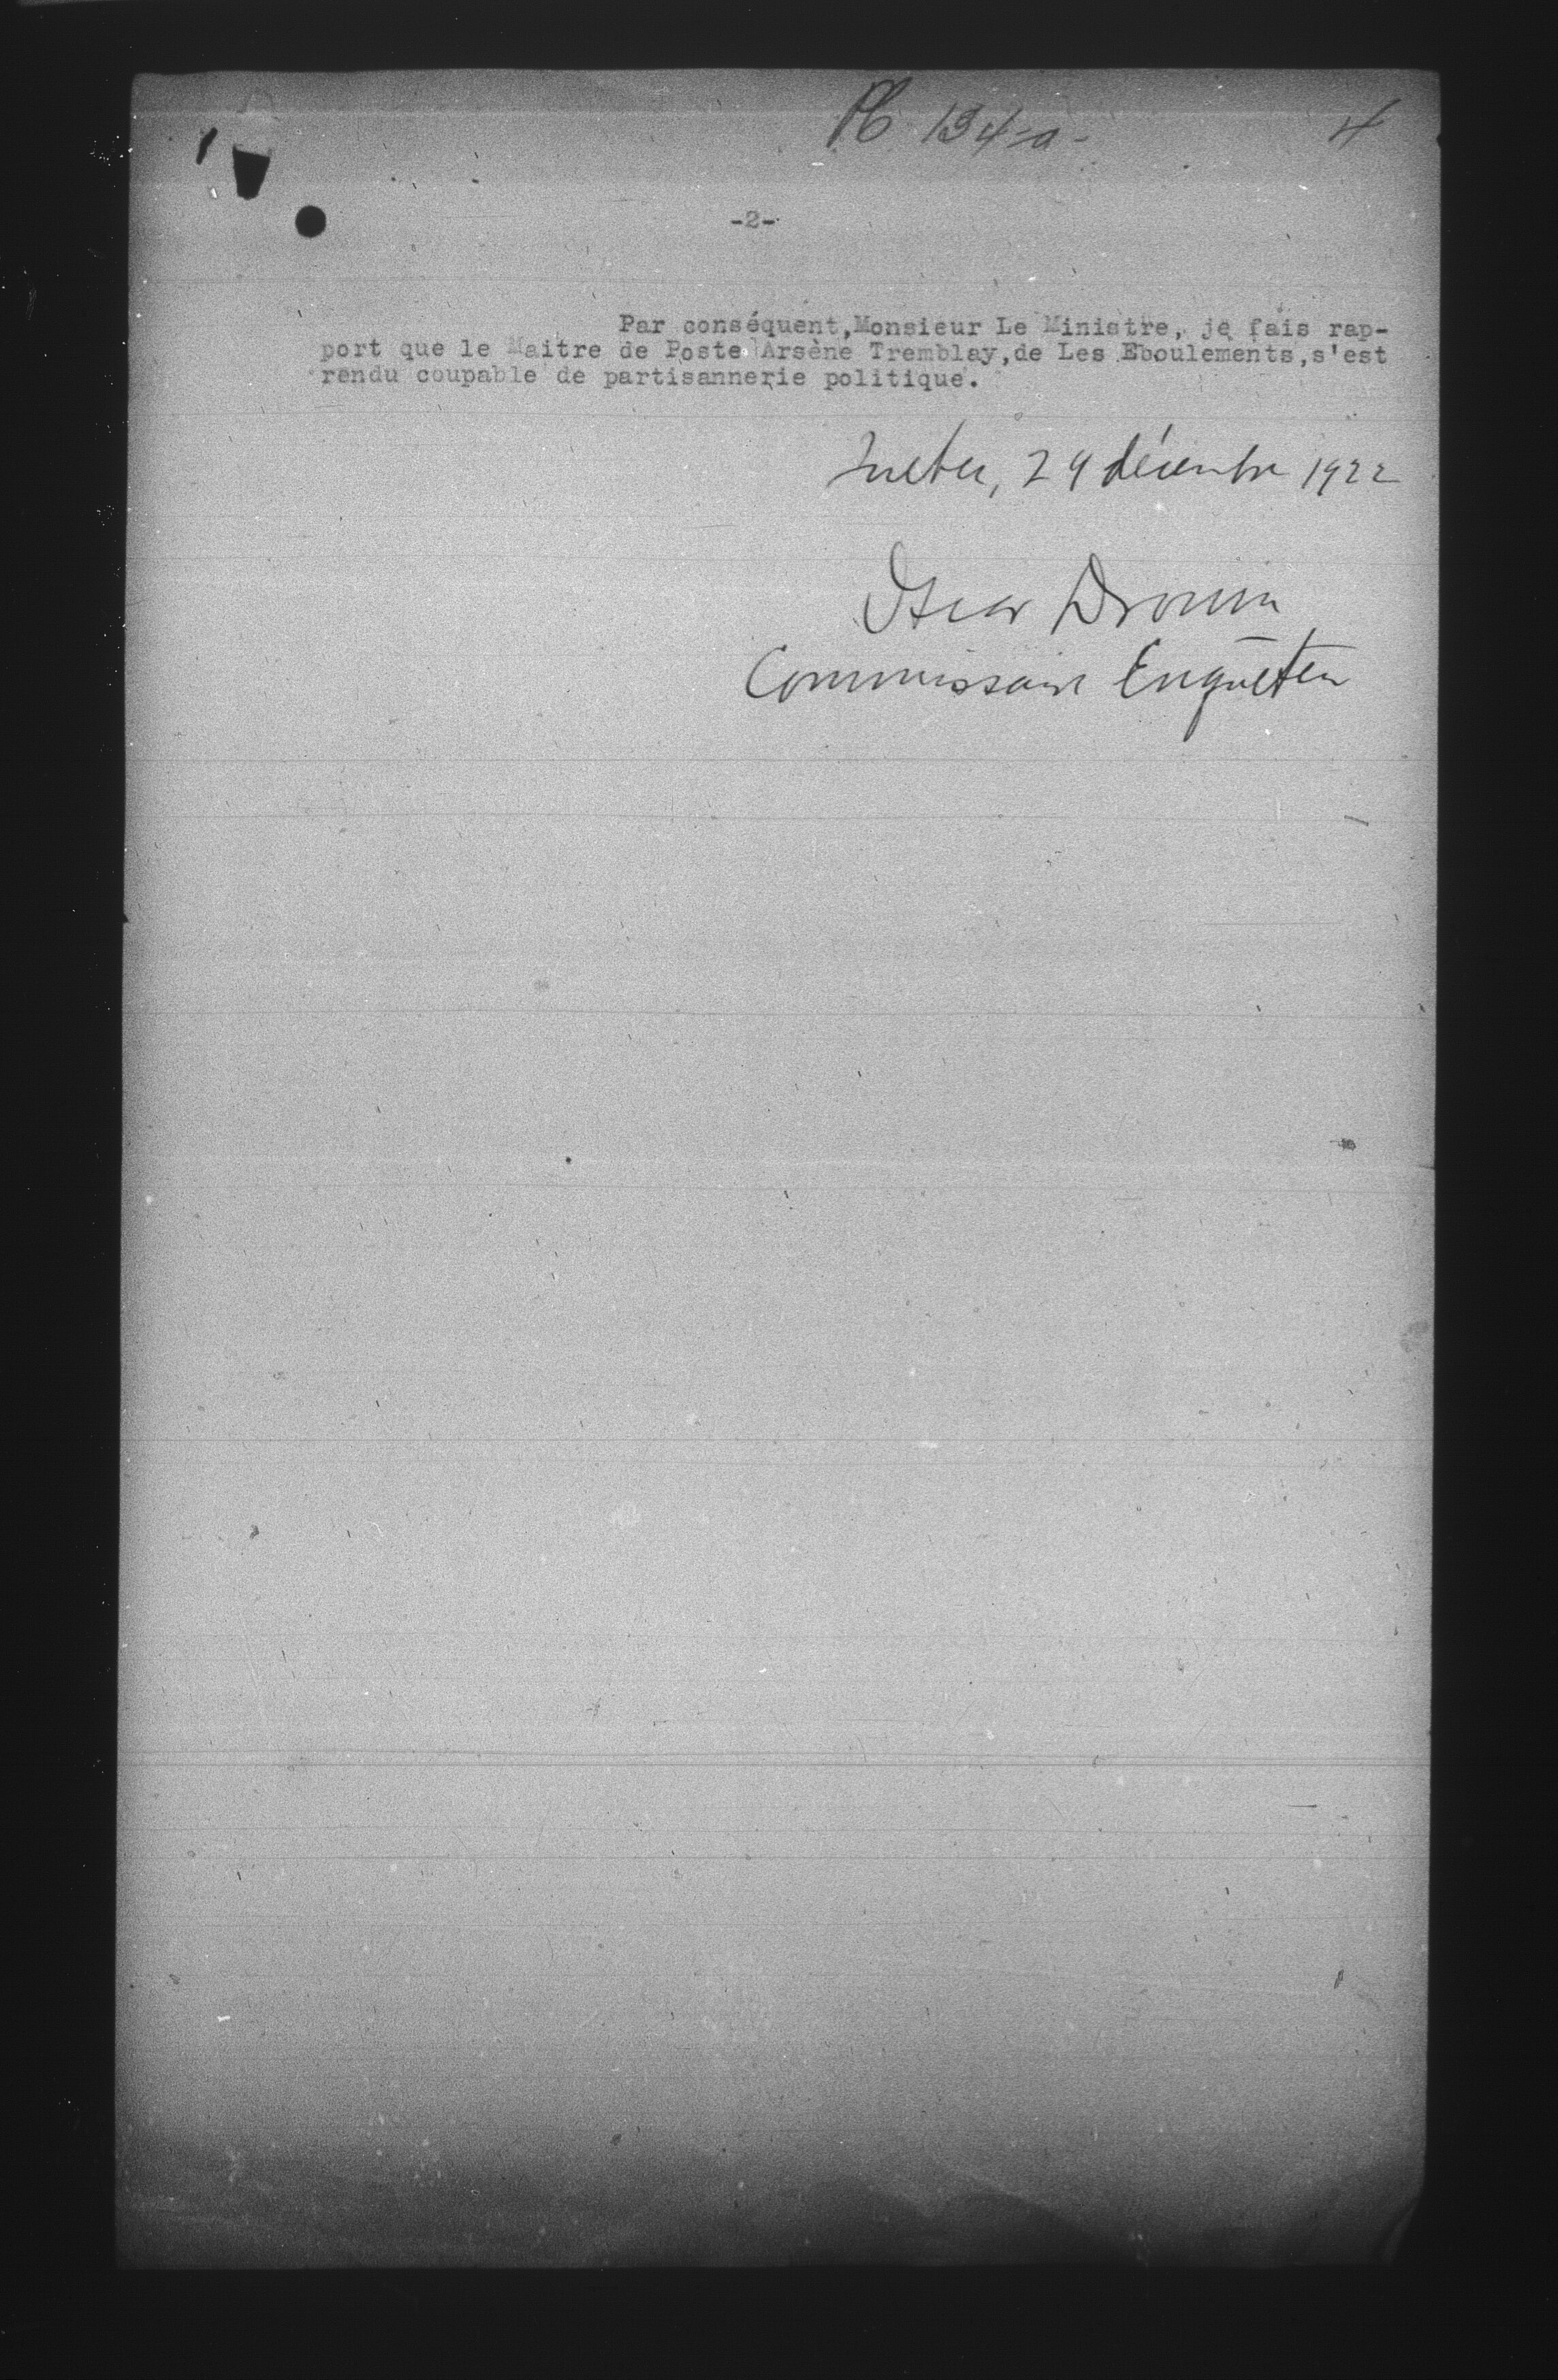 134-a-
4
-2-
Par conséquent,Monsieur Le Ministre, je fais rap-
port que le Maitre de Poste Arsène Tremblay,de Les Eboulements,s'est
rendu coupable de partisannerie politique.
Québec, 29 décembre 1922
Oscar Drouin
Commissaire Enquêteur